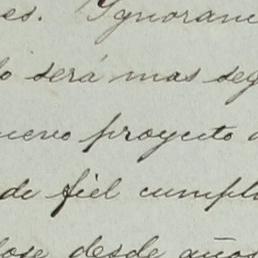 es. Ignoranc
o será mas seg
uevo proyecto d
de fiel cumpli
dose desde años